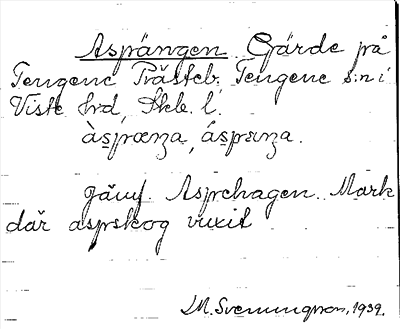 Aspängen Gärde på
Tengene Prästeb. Tengene s:n i
Viste hrd, Skbg. l.
àspænza, áspænza.
jämf. Aspehagen. Mark
där aspskog vuxit
M. Svenungsson, 1939.